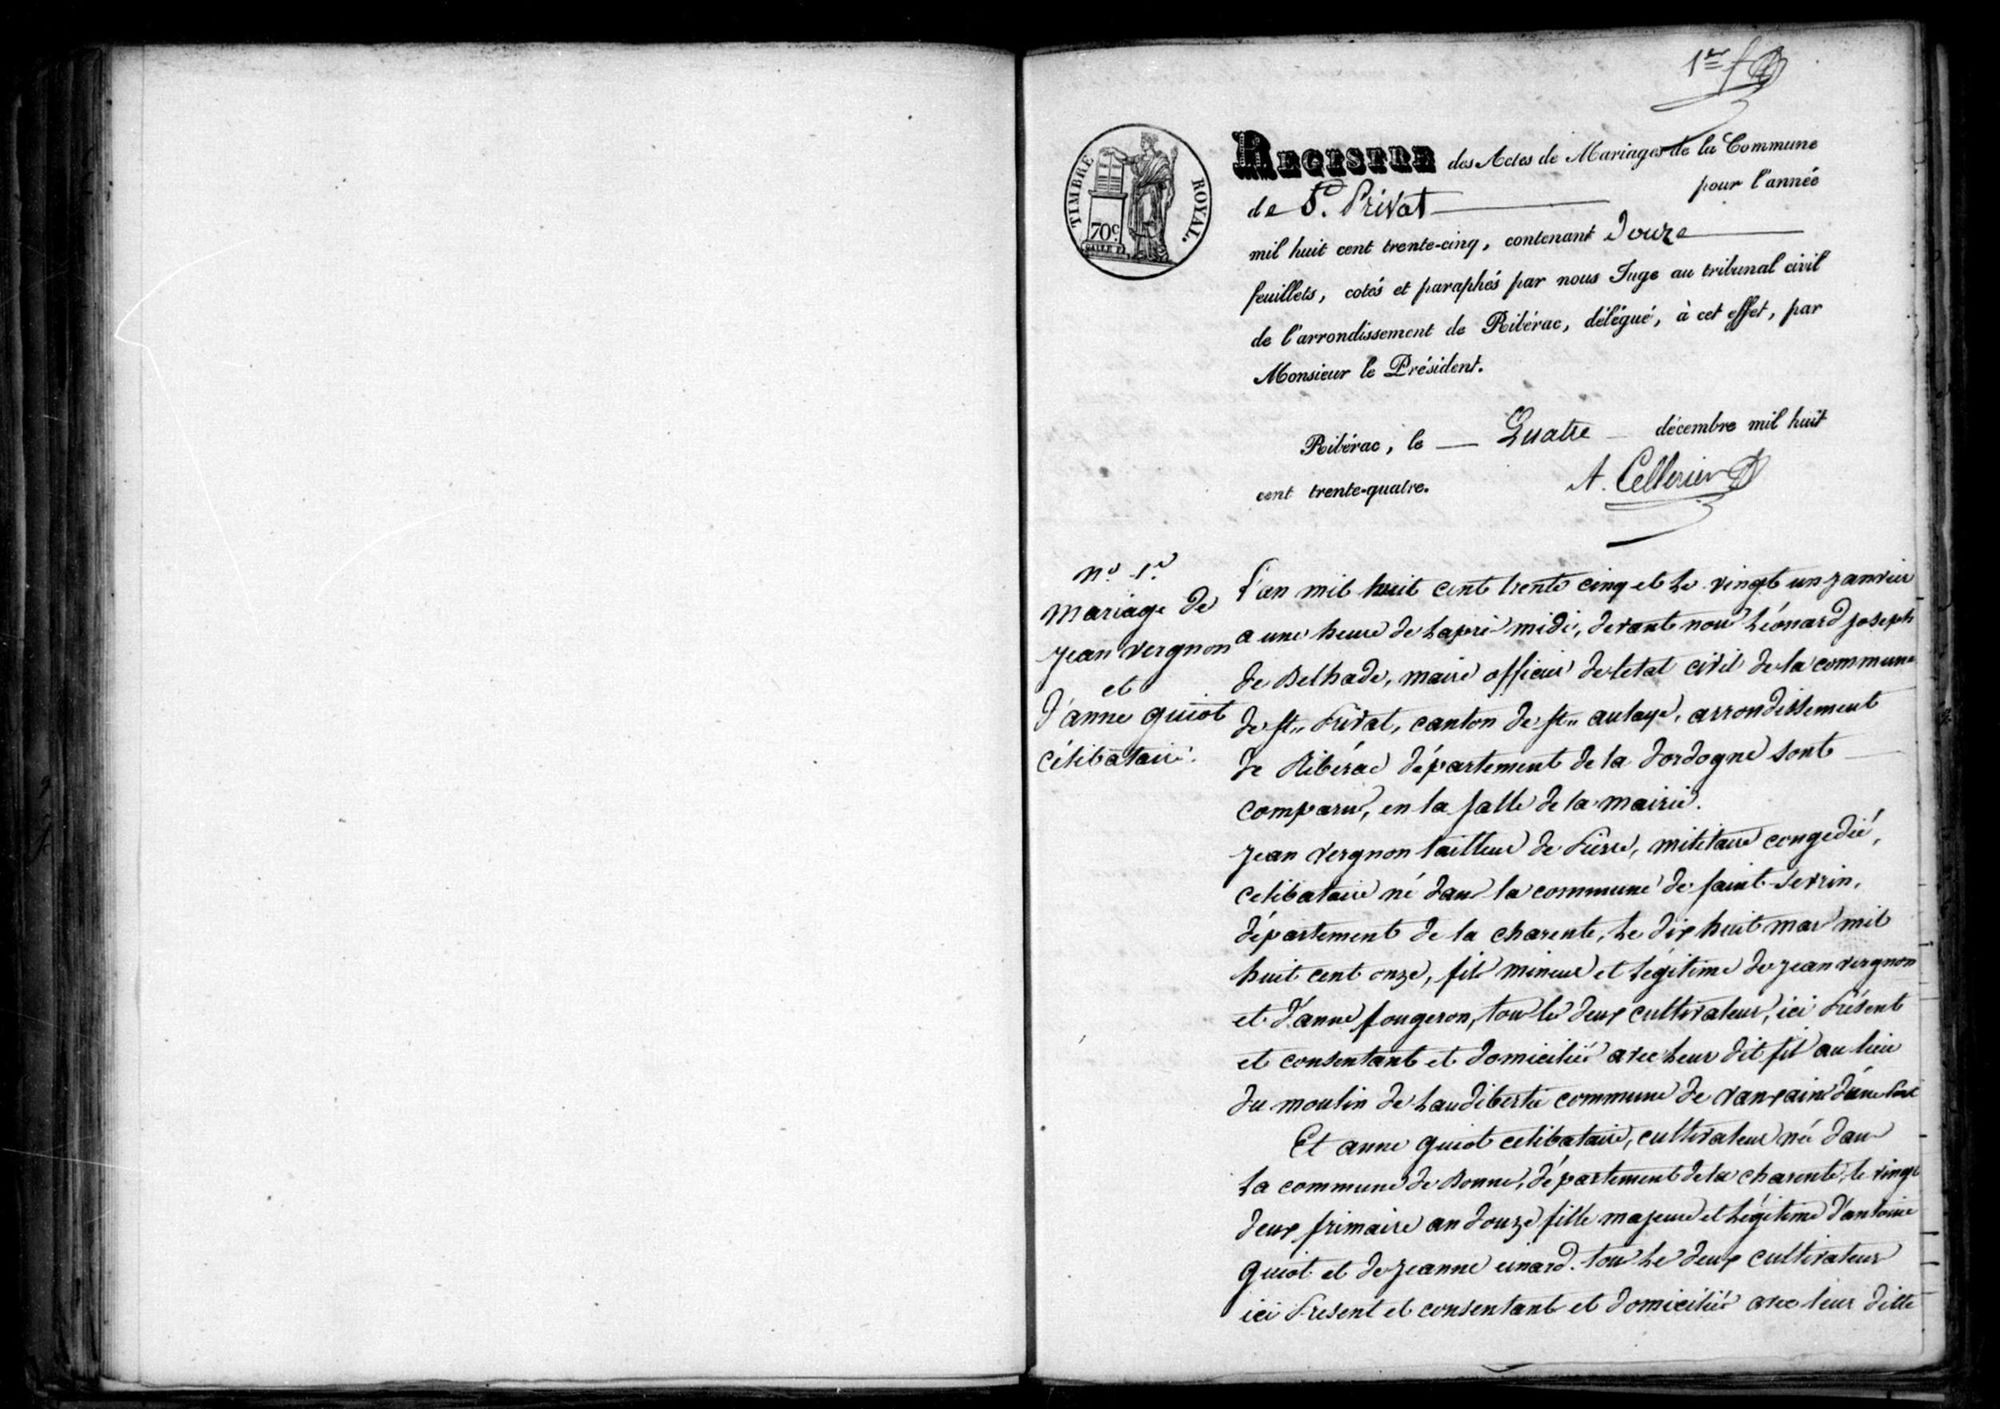 1er
TIMBRE ROYAL.
70c
REGISTRE des Actes de Mariages de la Commune
de St. Privat pour l'année
mil huit cent trente-cinq, contenant Douze
feuillets, cotés et paraphés par nous Juge au tribunal civil
de l'arrondissement de Ribérac, délégué, à cet effet, par
Monsieur le Président.
Ribérac, le Quatre décembre mil huit
cent trente-quatre.
A. Cellerier
n.o 1.er
mariage de
jean vergnon
et
d'anne quiot
célibataire.
L'an mil huit cent trente cinq et le vingt un janvier
a une heure de lapré midi, devant nous Léonard joseph
de Belhade, maire officier de letat civil de la commune
de St. Privat, canton de Ste aulaye, arrondissement
de Ribérac département de la dordogne sont
comparu, en la salle de la mairie.
jean vergnon tailleur de Pierre, militaire congédié,
celibataire né dans la commune de saint
département de la charente, le dix huit mars mil
huit cent onze, fils mineur et légitime de jean vergnon
et d'anne fougeron, tous les deux cultivateurs, ici Présent
et consentant et domiciliés avec leur dit fils au lieu
du moulin de commune de vanxains d'une Part
Et anne quiot celibataire, cultivateur née dans
la commune de Bonne, département de la charente, le vingt
deux frimaire an douze fille majeure et légitime d'antoine
quiot et de jeanne tous les deux cultivateurs
ici Présent et consentant et domiciliés avec leur ditte